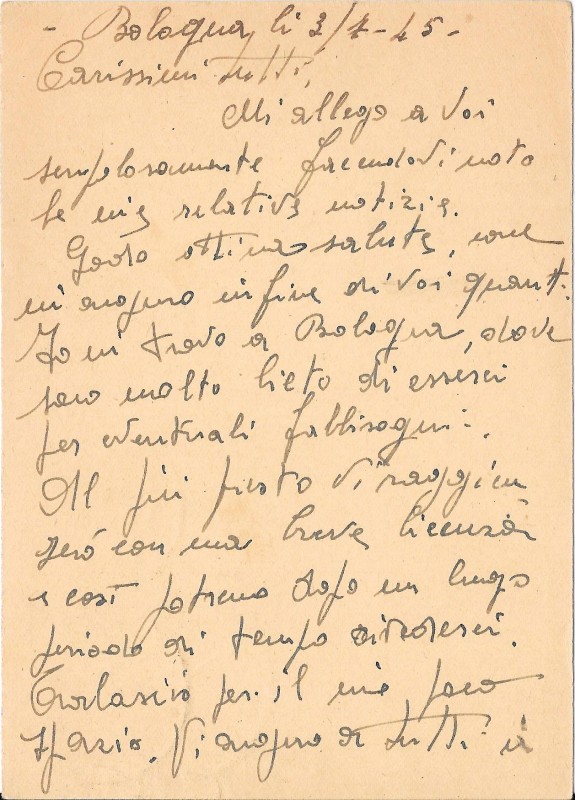 - Bologna, li 3/7-45-
Carissimi tutti,
Mi allego a Voi
facendovi noto
le mie relative notizie.
Godo ottima salute, come
mi auguro infine di voi quanti.
Io mi trovo a Bologna, dove
sono molto lieto di esserci
per eventuali fabbisogni.
Al più presto vi raggiun
gerò con una breve licenza
e così potremo dopo un lungo
periodo di tempo rivederci.
Tralascio per il mio poco
spazio. Vi auguro a tutti